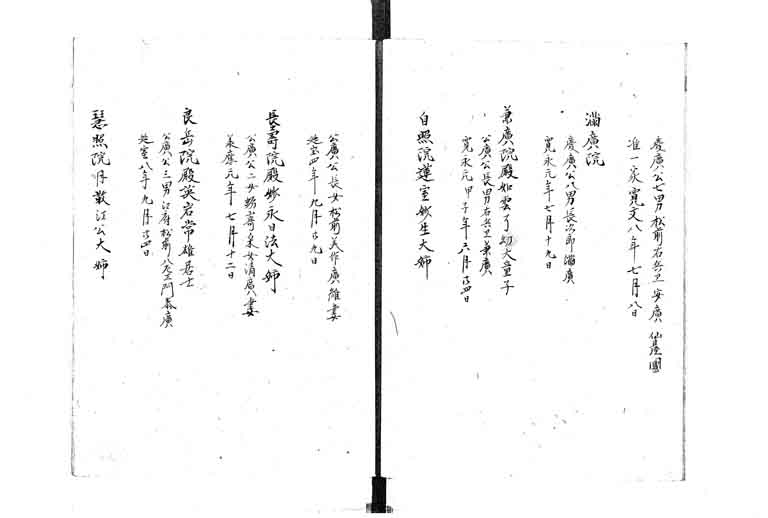 慶廣公七男松前右兵衛安廣 仙臺國
准一家寛文八年七月八日
満廣院
慶廣公八男長次郎満廣
寛永元年七月十九日
兼廣院殿如雲了幻大童子
公廣公長男右兵衛兼廣
寛永元甲子年六月廿四日
自照院蓮室妙生大姉
公廣公長女松前美作廣維妻
延宝四年九月廿九日
長壽院殿妙永日法大姉
公廣公二女蛎崎采女満廣妻
承應元年七月十二日
良岳院殿英岩常雄居士
公廣公三男江府松前八左エ門泰廣
延宝八年九月廿四日
慧照院月散江公大姉